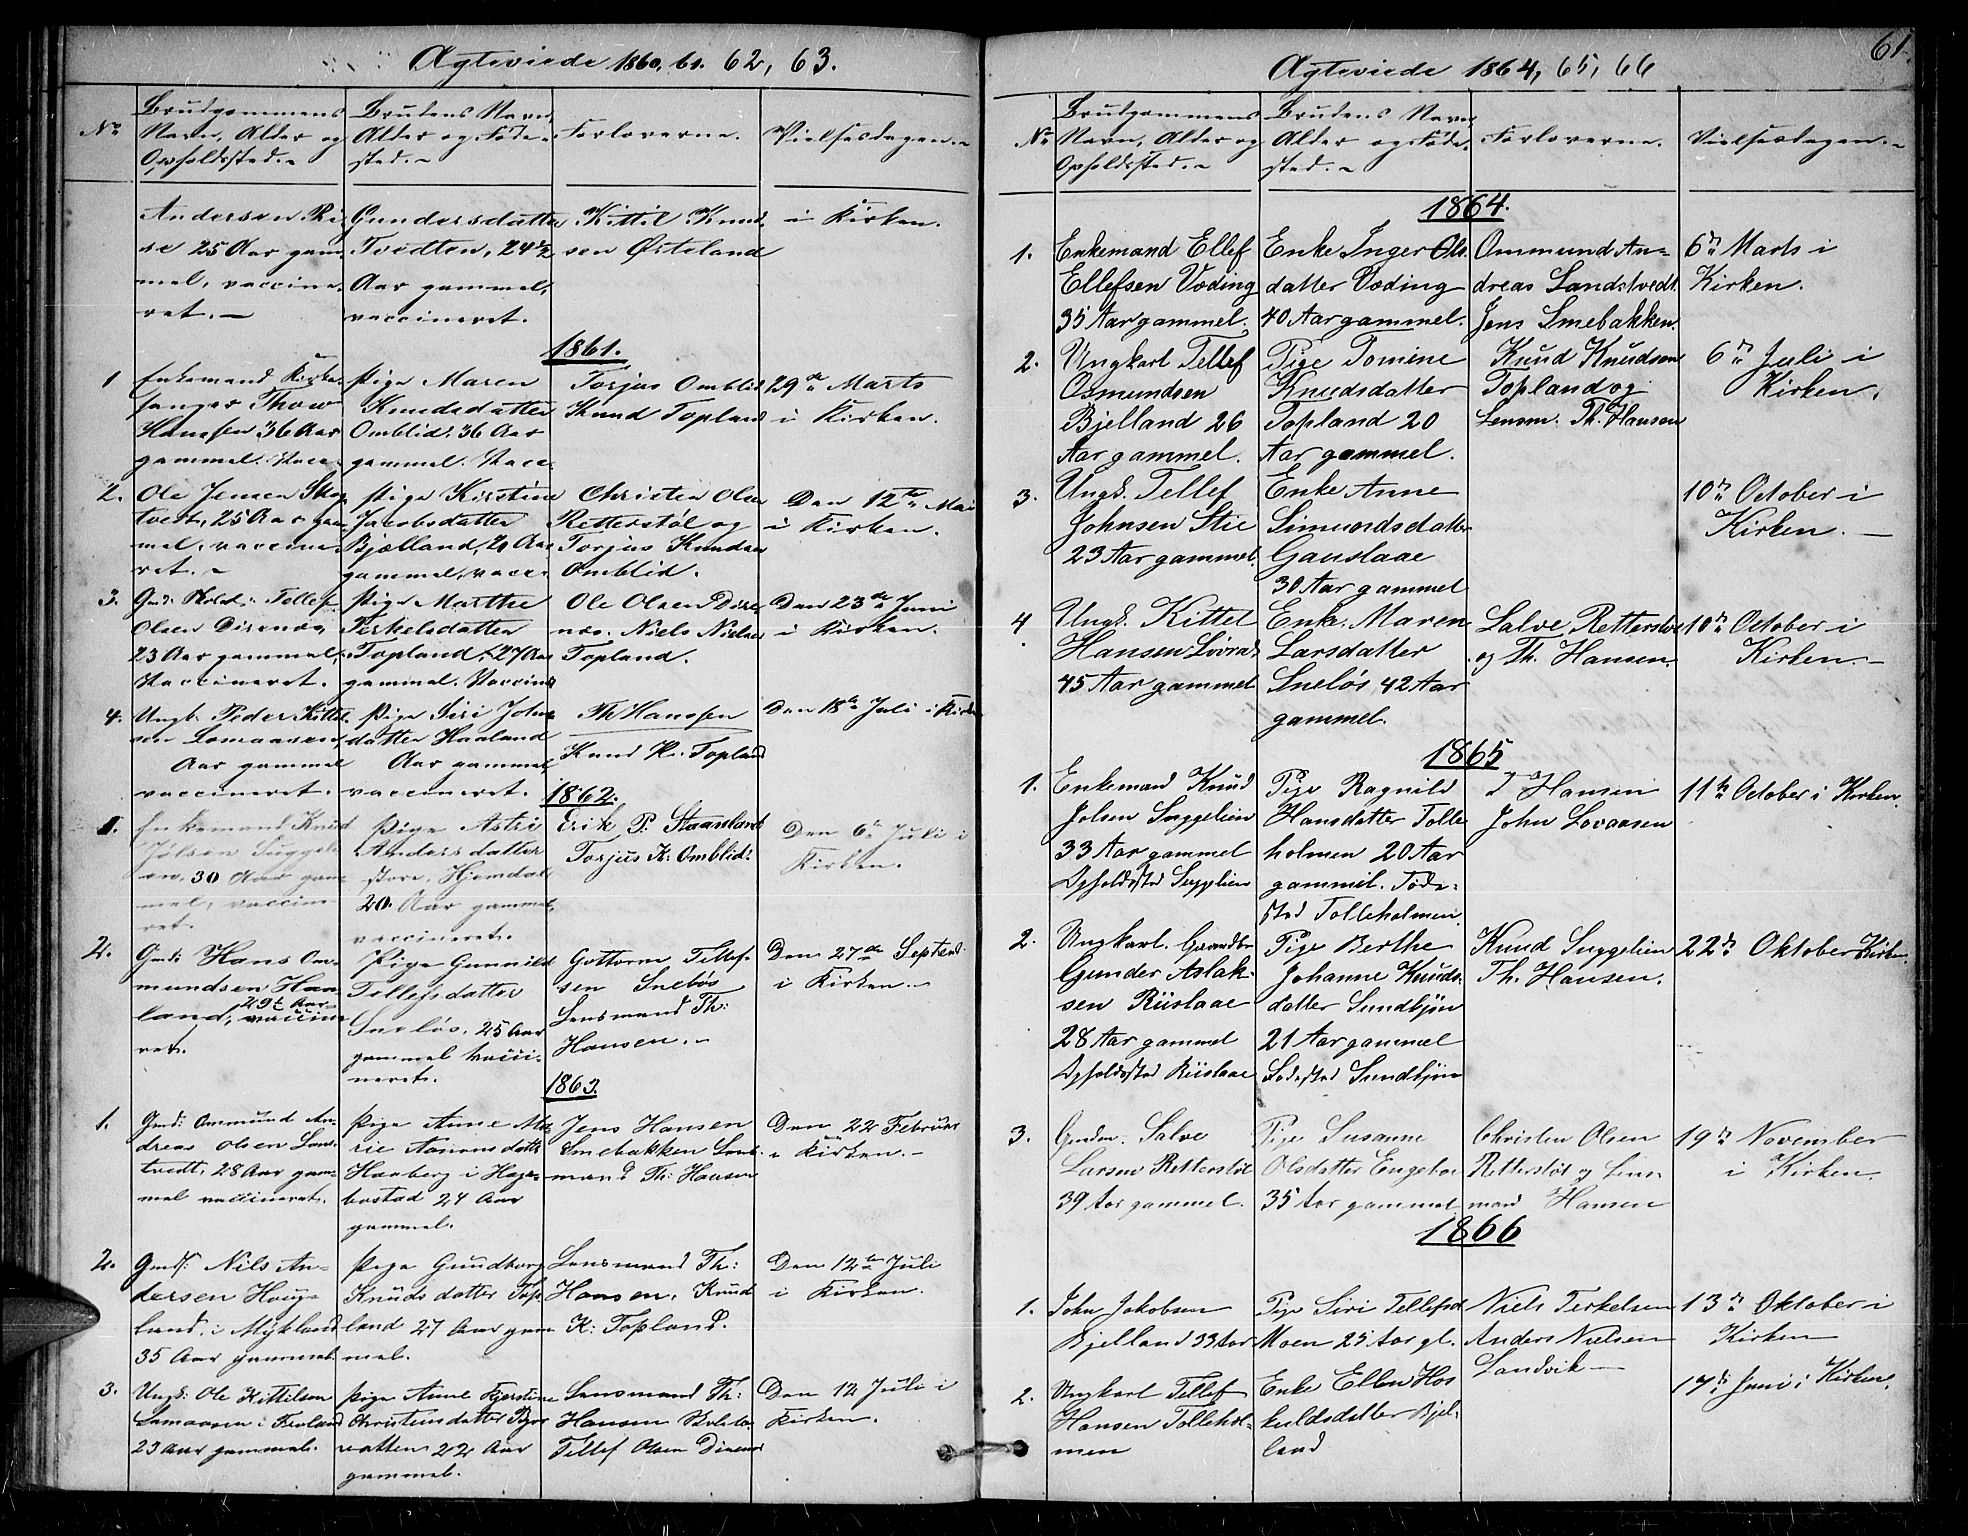 Ægteviede 1860, 61. 62, 63.
No
Brudgommens Navn, Alder og Opholdssted.
Brudens Navn, Alder og Fødested.
Forloverne.
Vielsesdagen.
Andersen Ri-
se 25 Aar gam-
mel, vaccine-
ret.
Gundersdatter
Tvedten, 24½
Aar gammel,
vaccineret.
Kittil Knud-
sen Østeland
i Kirken.
1861.
1
Enkemand Kirke-
sanger Thow
Hanssen 36 Aar
gammel. Vacc.
Pige Maren
Knudsdatter
Omblid. 36 Aar
gammel. Vacc.
Torjus Omblid
Knud Topland
29de Marts
i Kirken.
2.
Ole Jensen Skog-
tvedt, 25 Aar gam-
mel, vaccine-
ret.
Pige Kirstine
Jacobsdatter
Bjælland, 20 Aar
gammel, vacc.
Christen Olsen
Retterstøl og
Torjus Knudsen
Omblid.
Den 12te Mai
i Kirken.
3.
Gmd: Tellef
Olsen Direnæs
23 Aar gammel,
Vaccineret.
Pige Marthe
Terkelsdatter
Topland, 27 Aar
gammel. Vaccine
Ole Olsen Dire-
næs. Niels Nielsen
Topland.
Den 23de Juni
i Kirken.
4.
Ungk. Peder Kittel-
sen Lomaasen,
Aar gammel
vaccineret.
Pige Siri John-
datter Haaland
Aar gammel,
vaccineret.
Th Hanssen
Knud K. Topland
Den 18de Juli i Kirken
1862.
1.
Enkemand Knud
Jølsen Suggeli-
en, 30 Aar gam-
mel, vaccine-
ret.
Pige Astri
Andersdatter
store Hjemdal
20. Aar gammel,
vaccineret.
Erik P. Staansland
Torjus K: Omblid.
Den 6te Juli i
Kirken.
2.
Gmd: Hans Om-
mundsen Haa-
land, 29t Aar
vaccine-
ret.
Pige Gunnild
Tellefsdatter
Sneløs, 25 Aar
gammel vacci-
neret.
Gottorm Tellef-
sen Sneløs
Lensmand Th:
Hansen.
Den 27de Septbr
i Kirken.
1863.
1.
Gmd: Ommund An-
dreas Olsen Lands-
tvedt, 28 Aar gam-
mel vaccineret.
Pige Anne Ma-
rie Aanonsdatter
Haaberg i Hege-
bostad 24 Aar
gammel.
Jens Hansen
Smebakken Lens-
mand Th: Hansen
Den 22 Februar
i Kirken.
2.
Gmdf: Nils An-
dersen Houg-
land, i Mykland
35 Aar gammel.
Pige Gundborg
Knudsdatter Top-
land 27 Aar gam-
mel.
Lensmand Th:
Hansen. Knud
K: Topland.
Den 12te Juli
i Kirken.
3.
Ungk: Ole Kittilsen
Lomaasen i Froland
23 Aar gammel.
Pige Anne Kjerstine
Christensdatter
vatten 22 Aar
gammel.
Lensmand Th:
Hansen
Tellef Olsen Direnæs
Den 12 Juli i
Kirken.
61.
Ægteviede 1864, 65, 66
No
Brudgommens Navn, Alder og Opholdssted.
Brudens Navn Alder og Fødested.
Forloverne.
Vielsesdagen.
1864.
1.
Enkemand Ellef
Ellefsen Væding
35 Aar gammel.
Enke Inger Ols-
datter Væding
40 Aar gammel.
Ommund An-
dreas Landstvedt
Jens Smebakken.
6te Marts i
Kirken.
2.
Ungkarl Tellef
Osmundsen
Bjelland 26
Aar gammel.
Pige Tomine
Knudsdatter
Topland 20
Aar gammel.
Knud Knudsen
Topland og
Lensm. Th. Hansen
6te Juli i
Kirken.
3.
Ungk. Tellef
Johnsen Stie
23 Aar gammel.
Enke Anne
Simundsdatter
Gauslaae
30 Aar gammel
10de October i
Kirken.
4
Ungk. Kittel
Hansen Løvra
45 Aar gammel
Enke Maren
Larsdatter
Sneløs 42 Aar
gammel.
Salve Retterstøl
og Th. Hansen.
10de October i
Kirken.
1865
1.
Enkemand Knud
Jolsen Suggelien
33 Aar gammel
Opholdssted Suggelien
Pige Ragnild
Hansdatter Tolle-
holmen 20 Aar
gammel. Føde-
sted Tolleholmen
T Hansen
John Lovaasen
11te October i Kirken.
2.
Ungkarl. Gaardbr
Gunder Aslak-
sen Riislaae
28 Aar gammel
Opholdssted Riislaae
Pige Berthe
Johanne Knuds-
datter Sundbjøn
21 Aar gammel
Fødested Sundbjøn
Knud Suggelien
Th. Hansen.
22de Oktober Kirken.
3.
Gmdm. Salve
Larsen Retterstøl
39 Aar gammel.
Pige Susanne
Olsdatter Engebo
35 Aar gammel
Christen Olsen
Retterstøl og Lens-
mand Hansen
19de November
i Kirken.
1866
1.
John Jakobsen
Bjelland 33 Aar
Pige Siri Tellefsd
Moen 25 Aar gl.
Niels Terkelsen
Anders Nielsen
Landvik
13de Oktober i
Kirken
2.
Ungkarl Tellef
Hansen Tollehol-
men
Enke Ellen Hos-
kuldsdatter Bjel-
land
17de Juni i Kirken.